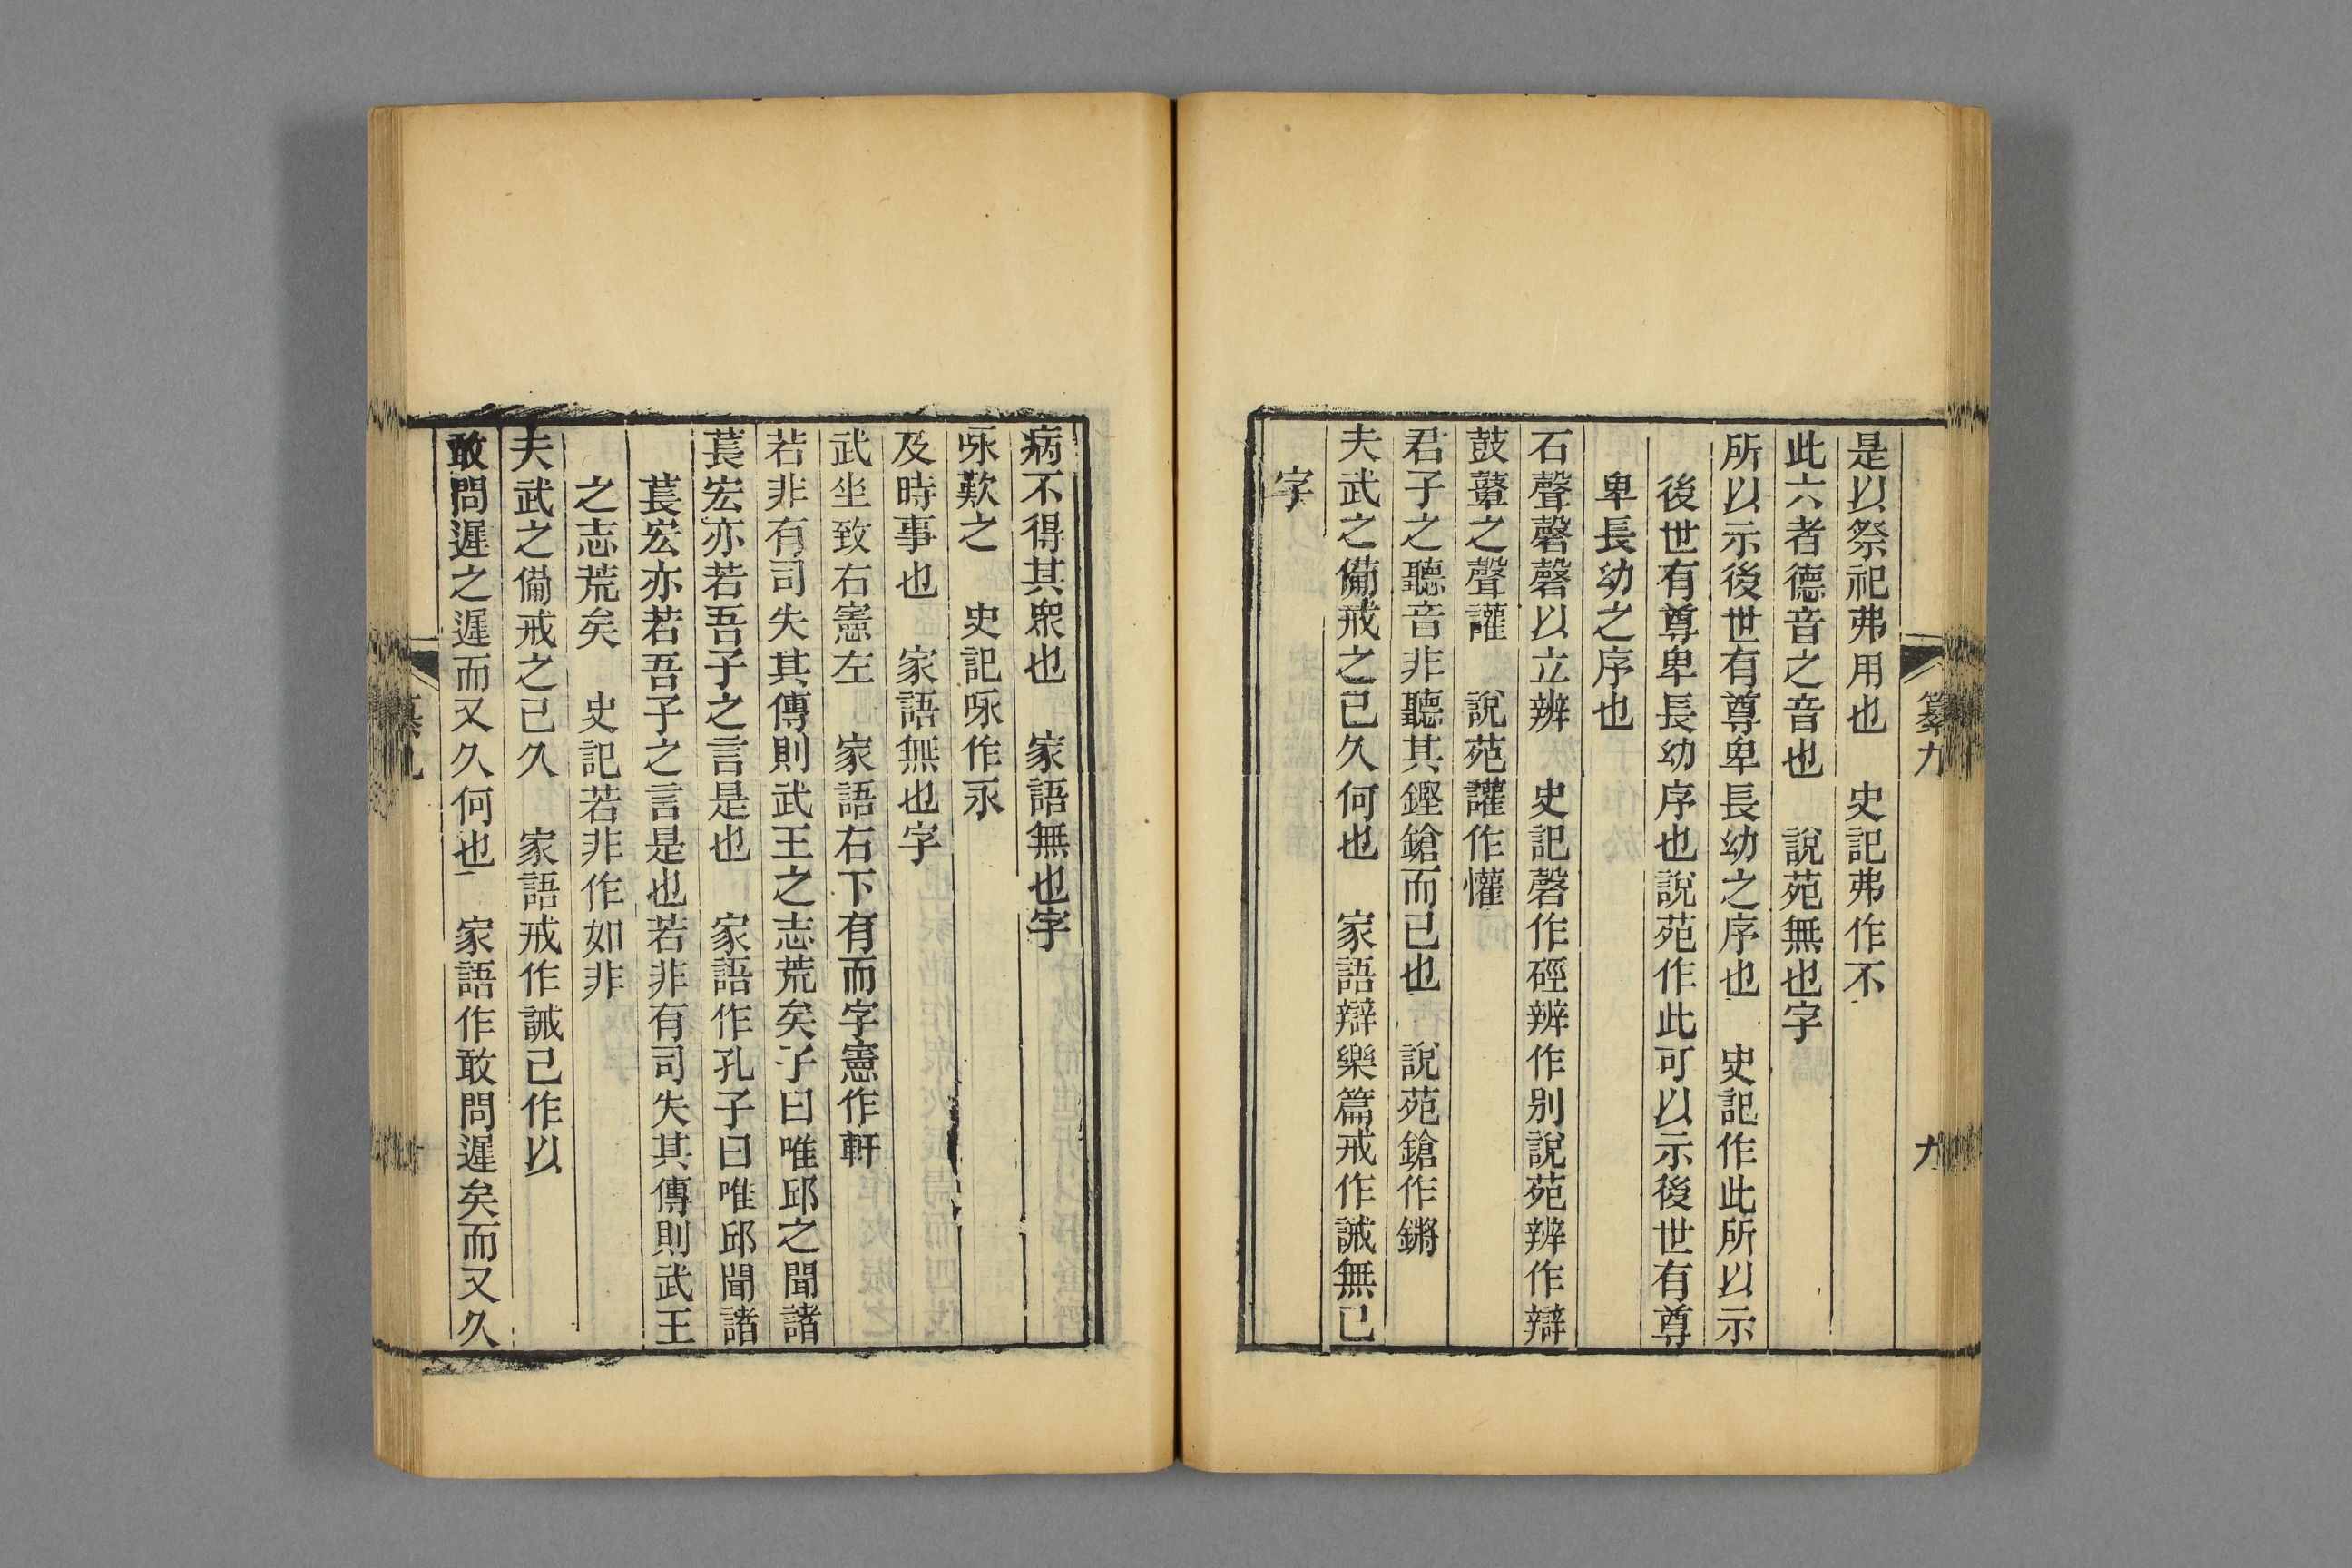 纂九
九
是以祭祀弗用也　史記弗作不
此六者德音之音也　說苑無也字
所以示後世有尊卑長幼之序也　史記作此所以示
後世有尊卑長幼序也說苑作此可以示後世有尊
卑長幼之序也
石聲磬磬以立辨　史記磬作硜辨作別說苑辨作辯
鼓鼙之聲讙　說苑讙作懽
君子之聽音非聽其鏗鎗而已也　說苑鎗作鏘
夫武之備戒之已久何也　家語辯樂篇戒作誡無已
字
病不得其衆也　家語無也字
咏歎之　史記咏作永
及時事也　家語無也字
武坐致右憲左　家語右下有而字憲作軒
若非有司失其傳則武王之志荒矣子曰唯邱之聞諸
萇宏亦若吾子之言是也　家語作孔子曰唯邱聞諸
萇宏亦若吾子之言是也若非有司失其傳則武王
之志荒矣　史記若非作如非
夫武之備戒之已久　家語戒作誡已作以
敢問遲之遲而又久何也　家語作敢問遲矣而又久